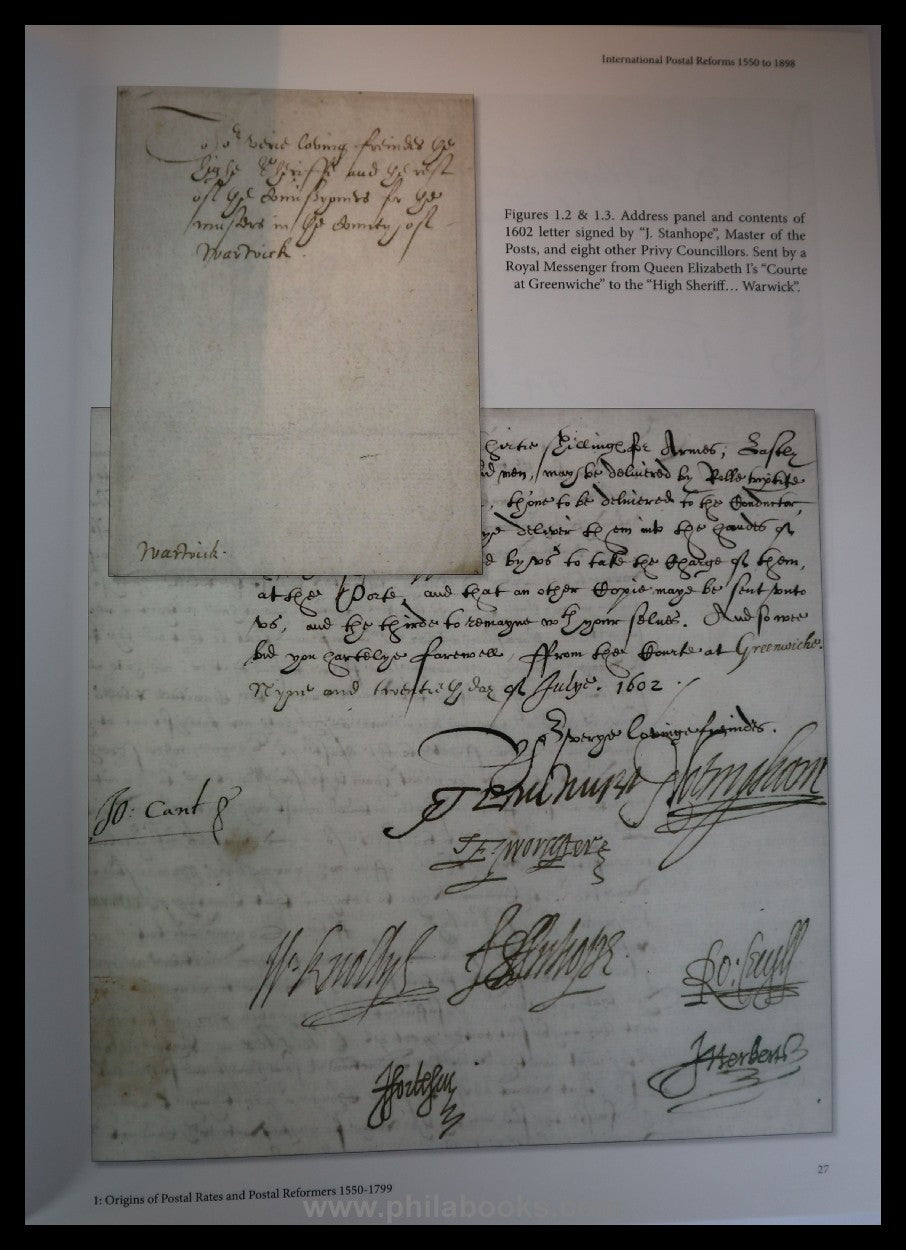 International Postal Reforms 1550 to 1898
To or verie loving freindes the
highe Sheriffe and the rest
of the Comissyoners for the
musters in the County of
Warwick.
Warwick.
Figures 1.2 & 1.3. Address panel and contents of
1602 letter signed by “J. Stanhope”, Master of the
Posts, and eight other Privy Councillors. Sent by a
Royal Messenger from Queen Elizabeth I’s “Courte
at Greenwiche” to the “High Sheriff… Warwick”.
hirtie shillings for Armes; Lastly
men, may be delivered by Rolle
, thone to be delivered to the Conductor,
deliver them into the handes of
by vs to take the Charge of them,
at the Porte, and that an other Copie maye be sent vnto
vs, and the thirde to remayne wth your selues. And so wee
bid you hartelye farewell, ffrom the Courte at Greenwiche.
Nyne and twentieth day of Julye. 1602.
Yor verye lovinge freindes.
Jo: Cant
T Buckhurst Notingham
E Worcester
W Knollys J Stanhope Ro: Cecyll
J Fortescu J Herbert
27
1: Origins of Postal Rates and Postal Reformers 1550-1799
www.philabooks.com